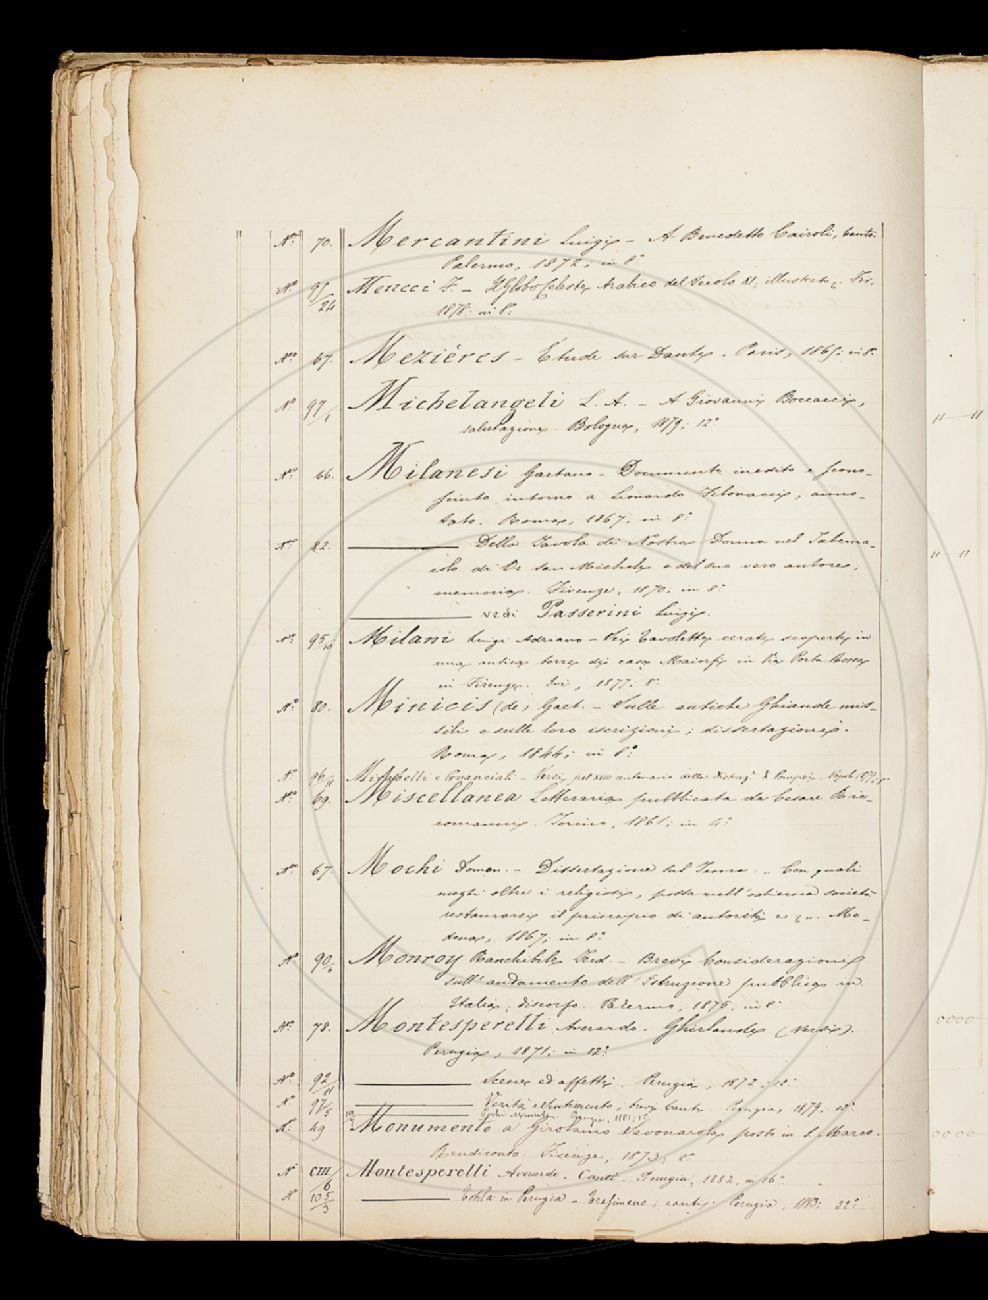 N.º 70. Mercantini Luigi - A Benedetto Cairoli, canto.
Palermo, 1872; in 8º
N.º 95/24 Meucci F. - Il Globo Celeste Arabico del Secolo XI. illustrato. Fir.
1878. in 8º
Nº 67. Meziéres - Etude sur Dante. Paris, 1865. in 8º
Nº 97/1 Michelangeli L. A. - A Giovanni Boccaccio,
salutazione. Bologna, 1879; 12º
Nº 66. Milanesi Gaetano - Documento inedito e scono-
sciuto intorno a Lionardo Fibonacci, anno-
tato. Roma, 1867; in 8º
Nº 82. Della Tavola di Nostra Donna nel Taberna-
colo di Or San Michele e del suo vero autore,
memoria. Firenze, 1870. in 8º
vedi Passerini Luigi.
Nº 95/10 Milani Luigi Adriano - Sei Tavolette cerate scoperte in
una antica torre di casa Majorfi in Via Porta Rossa
in Firenze. Ivi, 1877; 8º
Nº 80. Minicis (de) Gaet. - Sulle antiche Ghiande mis-
sili e sulle loro iscrizioni; dissertazione.
Roma, 1844; in 8º
Nº 96/11 Mirabelli e Quaranta
Nº 69. Miscellanea Letteraria pubblicata da Cesare Ric-
comanni. Torino, 1861; in 4º
Nº 67. Mochi Domen. - Dissertazione sul Tema - Con quali
modi oltre i religiosi, possa nell'odierna società
restaurarsi il principio di autorità ec. Mo-
dena, 1867; in 8º
Nº 90/6 Monroy Ranchibile Ferd. - Brevi Considerazioni
sull'andamento dell'Istruzione pubblica in
Italia; discorso. Palermo, 1876; in 8º
Nº 78. Montesperelli Averardo. Ghirlande (Versi).
Perugia, 1871; in 12º
Nº 92/11 Scene ed affetti. Perugia, 1872; 12º
Nº 97/5 Verità e Sentimento, brevi canti. Perugia, 1879; 12º
Perugia, 1881; 12º
N. 49 Monumento a Girolamo Savonarola posto in S. Marco.
Rendiconto. Firenze, 1873; 8º
Nº CIII/6 Montesperelli Averardo. Canti. Perugia, 1882, in 16º
Nº 105/3 Totila in Perugia - Trasimeno; canti. Perugia, 1883; 32º